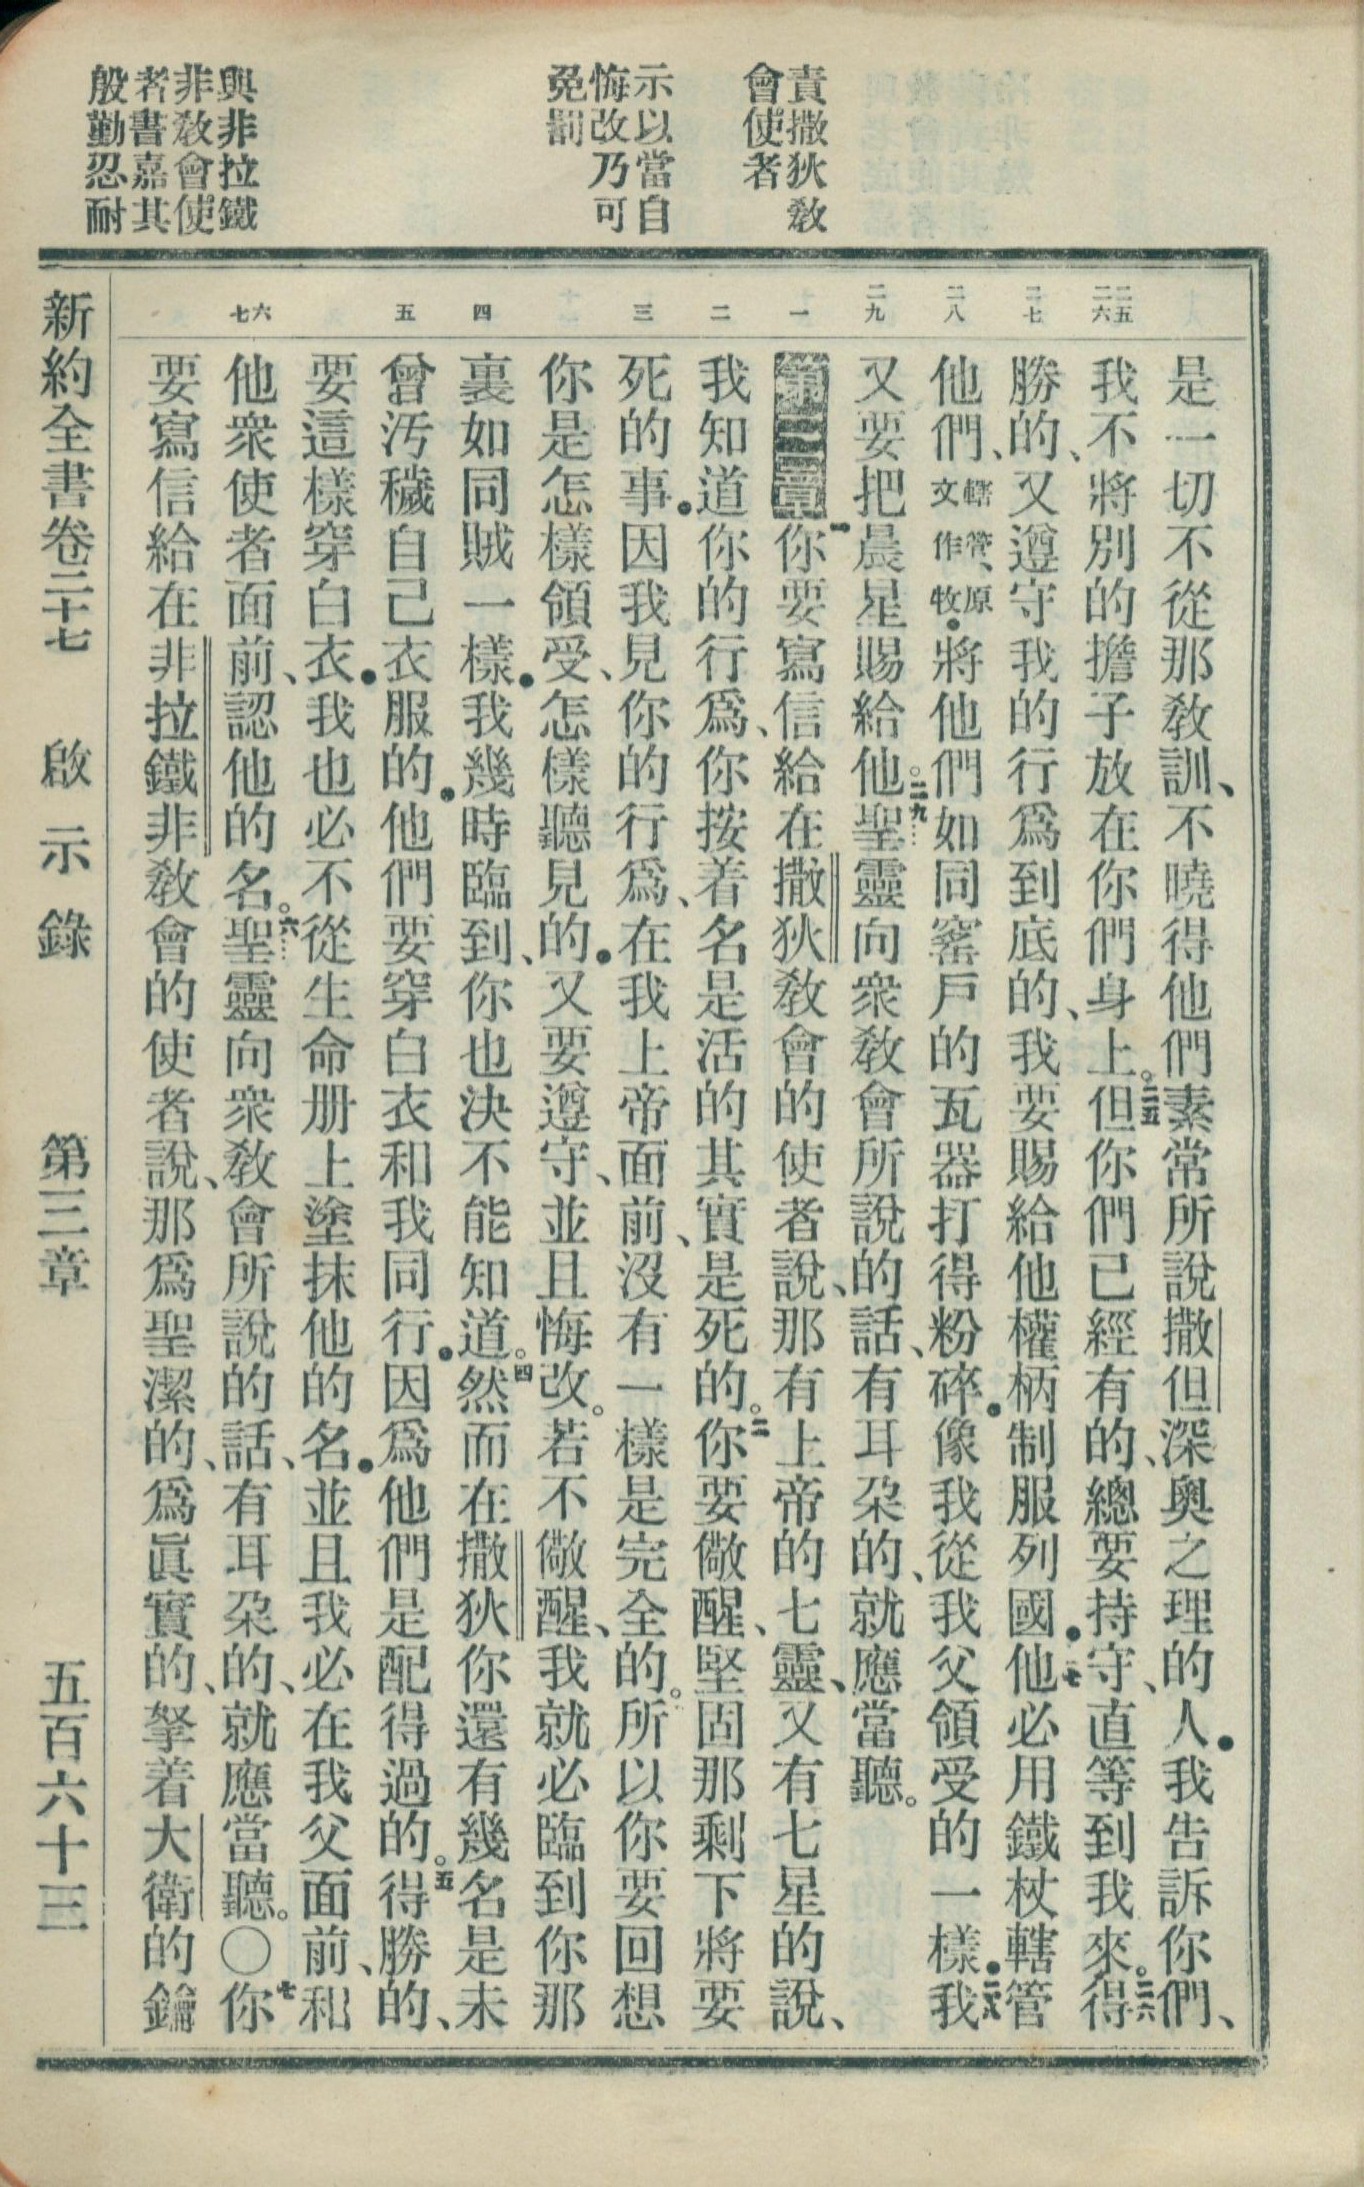 責撒狄敎
會使者
示以當自
悔改乃可
免罰
與非拉鐵
非敎會使
者書嘉其
般勤忍耐
二五
二六
二七
二八
二九
一
二
三
四
五
六
七
是一切不從那敎訓、不曉得他們素常所說撒但深奧之理的人●我吿訴你們、
我不將別的擔子放在你們身上。二五但你們已經有的、總要持守、直等到我來。二六得
勝的、又遵守我的行爲到底的、我要賜給他權柄制服列國●二七他必用鐵杖轄管
他們、轄管、原文作牧●將他們如同窰戶的瓦器打得粉碎●像我從我父領受的一樣●二八我
又要把晨星賜給他。二九聖靈向衆敎會所說的話、有耳朶的、就應當聽。
第三章 一你要寫信給在撒狄敎會的使者說、那有上帝的七靈、又有七星的說、
我知道你的行爲、你按着名是活的其實是死的。二你要儆醒、堅固那剩下將要
死的事●因我見你的行爲、在我上帝面前、沒有一樣是完全的。三所以你要回想
你是怎樣領受、怎樣聽見的●又要遵守、並且悔改。若不儆醒、我就必臨到你那
裏如同賊一樣●我幾時臨到、你也決不能知道。四然而在撒狄你還有幾名是未
曾汚穢自己衣服的●他們要穿白衣和我同行●因爲他們是配得過的。五得勝的、
要這樣穿白衣●我也必不從生命册上塗抹他的名●並且我必在我父面前、和
他衆使者面前、認他的名。六聖靈向衆敎會所說的話、有耳朶的、就應當聽。〇七你
要寫信給在非拉鐵非敎會的使者說、那爲聖潔的、爲眞實的、拏着大衛的鑰
新約全書卷二十七 啟示錄 第三章 五百六十三